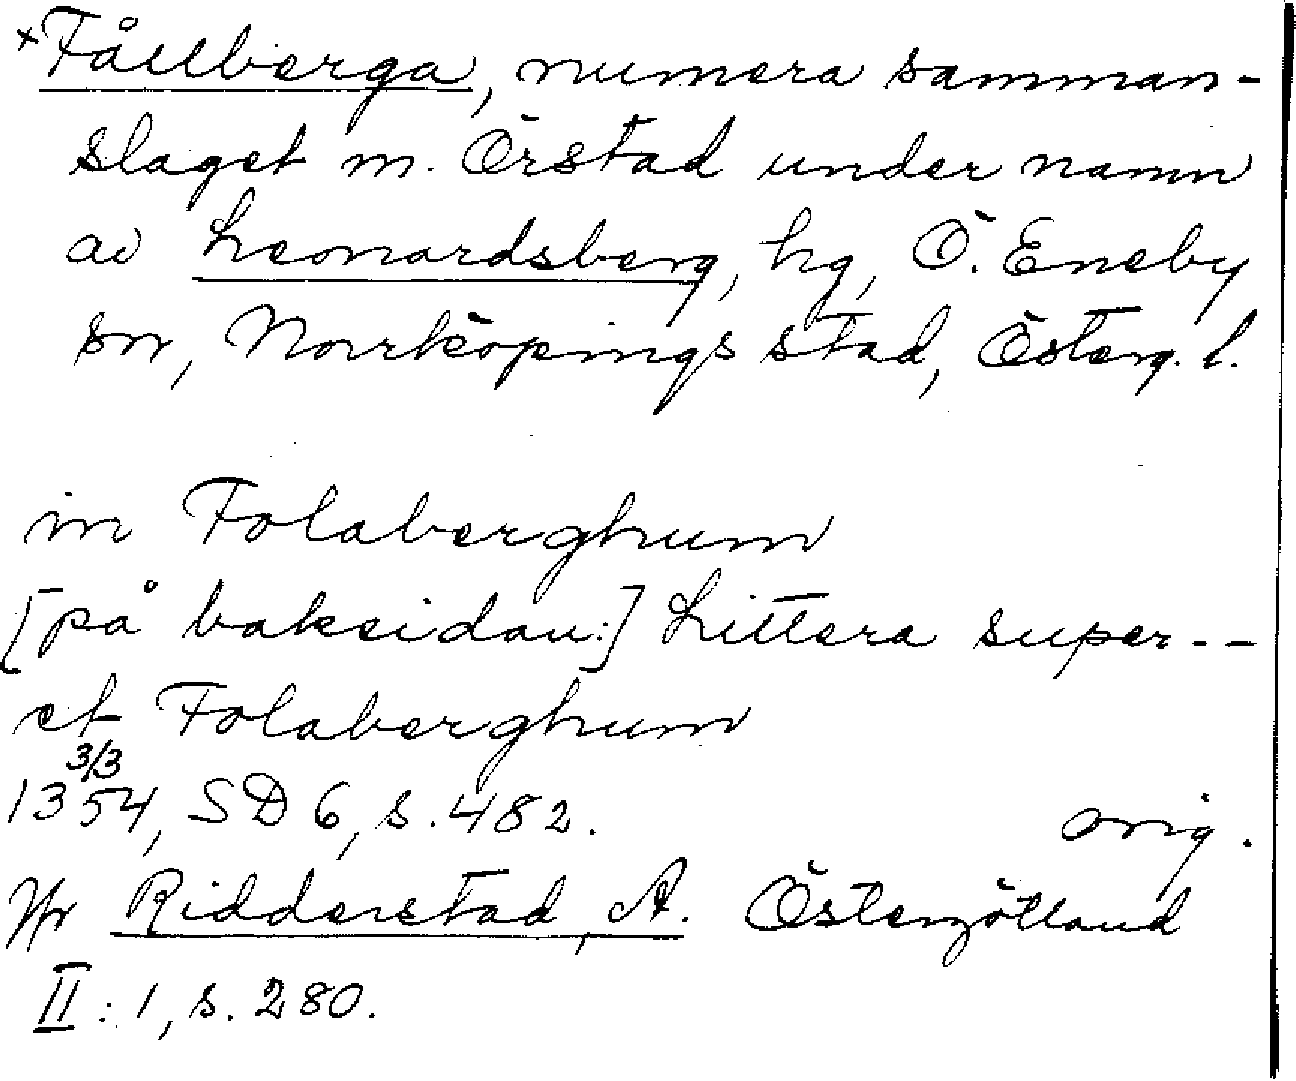 ×Fållberga, numera samman-
slaget m. Örstad under namn
av Leonardsberg, hg, Ö. Eneby
sn, Norrköpings stad, Österg. l.
in Folaberghum
[på baksidan:] Littera super--
et Folaberghum
1354 3/3, SD 6, s. 482. orig.
Jfr Ridderstad, A. Östergötland
II: 1, s. 280.